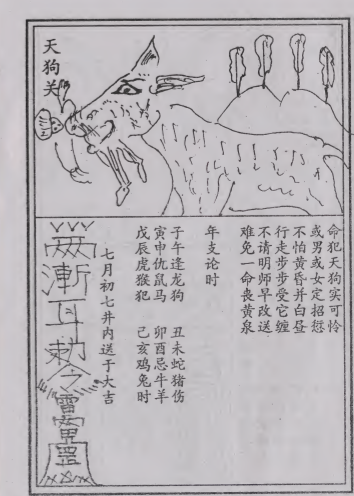 天狗关
命犯天狗实可怜
或男或女定招愆
不怕黄昏并白昼
行走步步受它缠
不请明师早改送
难免一命丧黄泉
年支论时
子午逢龙狗 丑未蛇猪伤
寅申仇鼠马 卯酉忌牛羊
戊辰虎猴犯 己亥鸡兔时
七月初七井内送于大吉